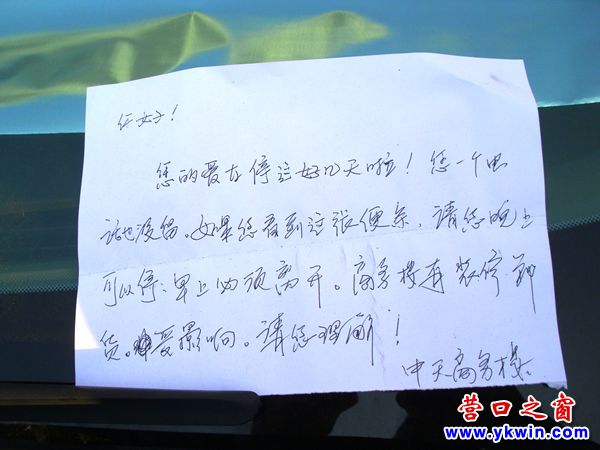 您好！
您的爱车停这好几天啦！您一个电
话也没留。如果您看到这张便条，请您晚上
可以停；早上必须离开。商务楼再装修卸
货。受影响。请您理解！
中天商务楼
营口之窗
www.ykwin.com